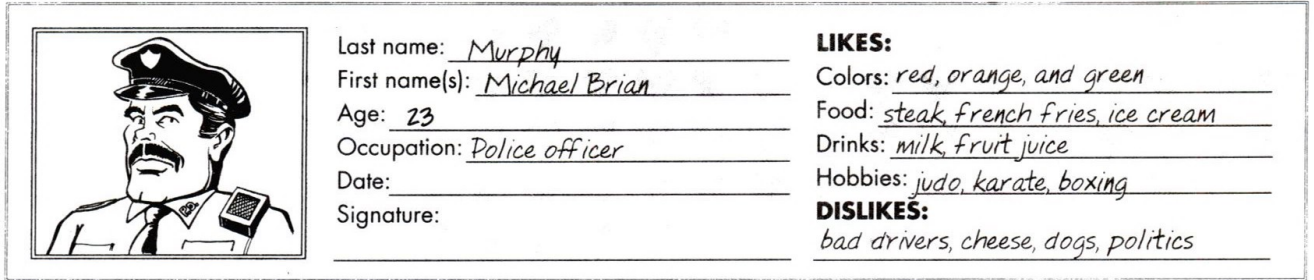 Last name: Murphy
First name(s): Michael Brian
Age: 23
Occupation: Police officer
Date:
Signature:
LIKES:
Colors: red, orange, and green
Food: steak, french fries, ice cream
Drinks: milk, fruit juice
Hobbies: judo, karate, boxing
DISLIKES:
bad drivers, cheese, dogs, politics